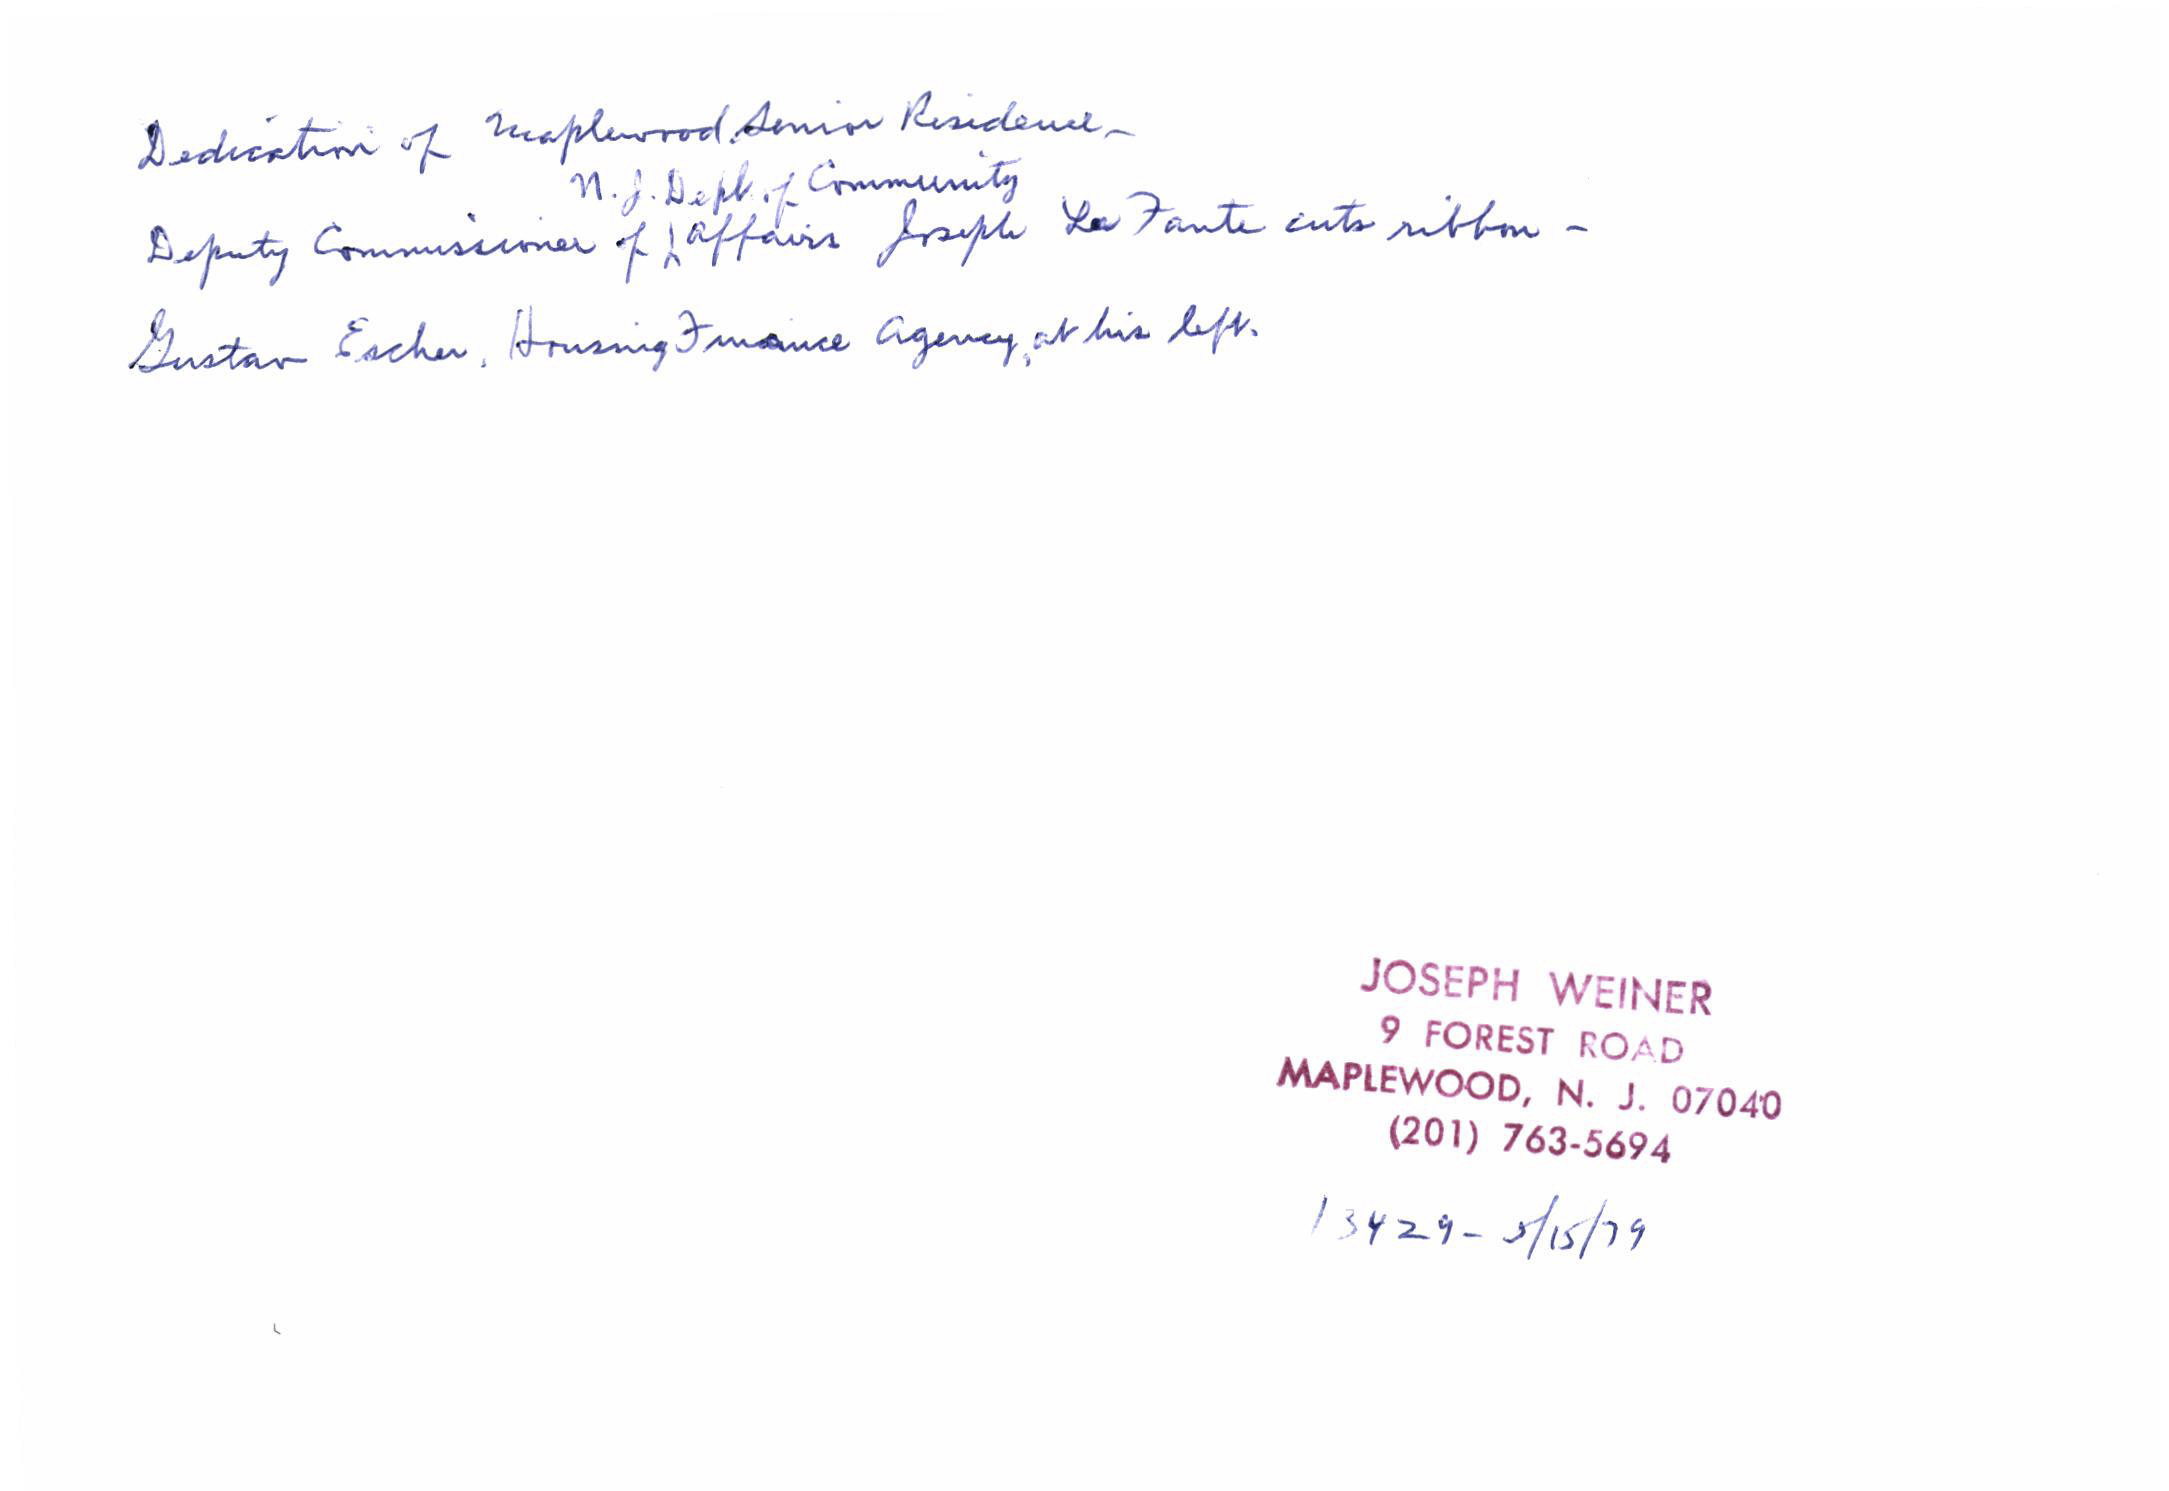 Dedication of Maplewood Senior Residence -
N.J. Dept. of Community
Deputy Commissioner of Affairs Joseph La Fante cuts ribbon -
Gustav Escher, Housing Finance Agency, at his left.
JOSEPH WEINER
9 FOREST ROAD
MAPLEWOOD, N. J. 07040
(201) 763-5694
13429 - 5/15/79